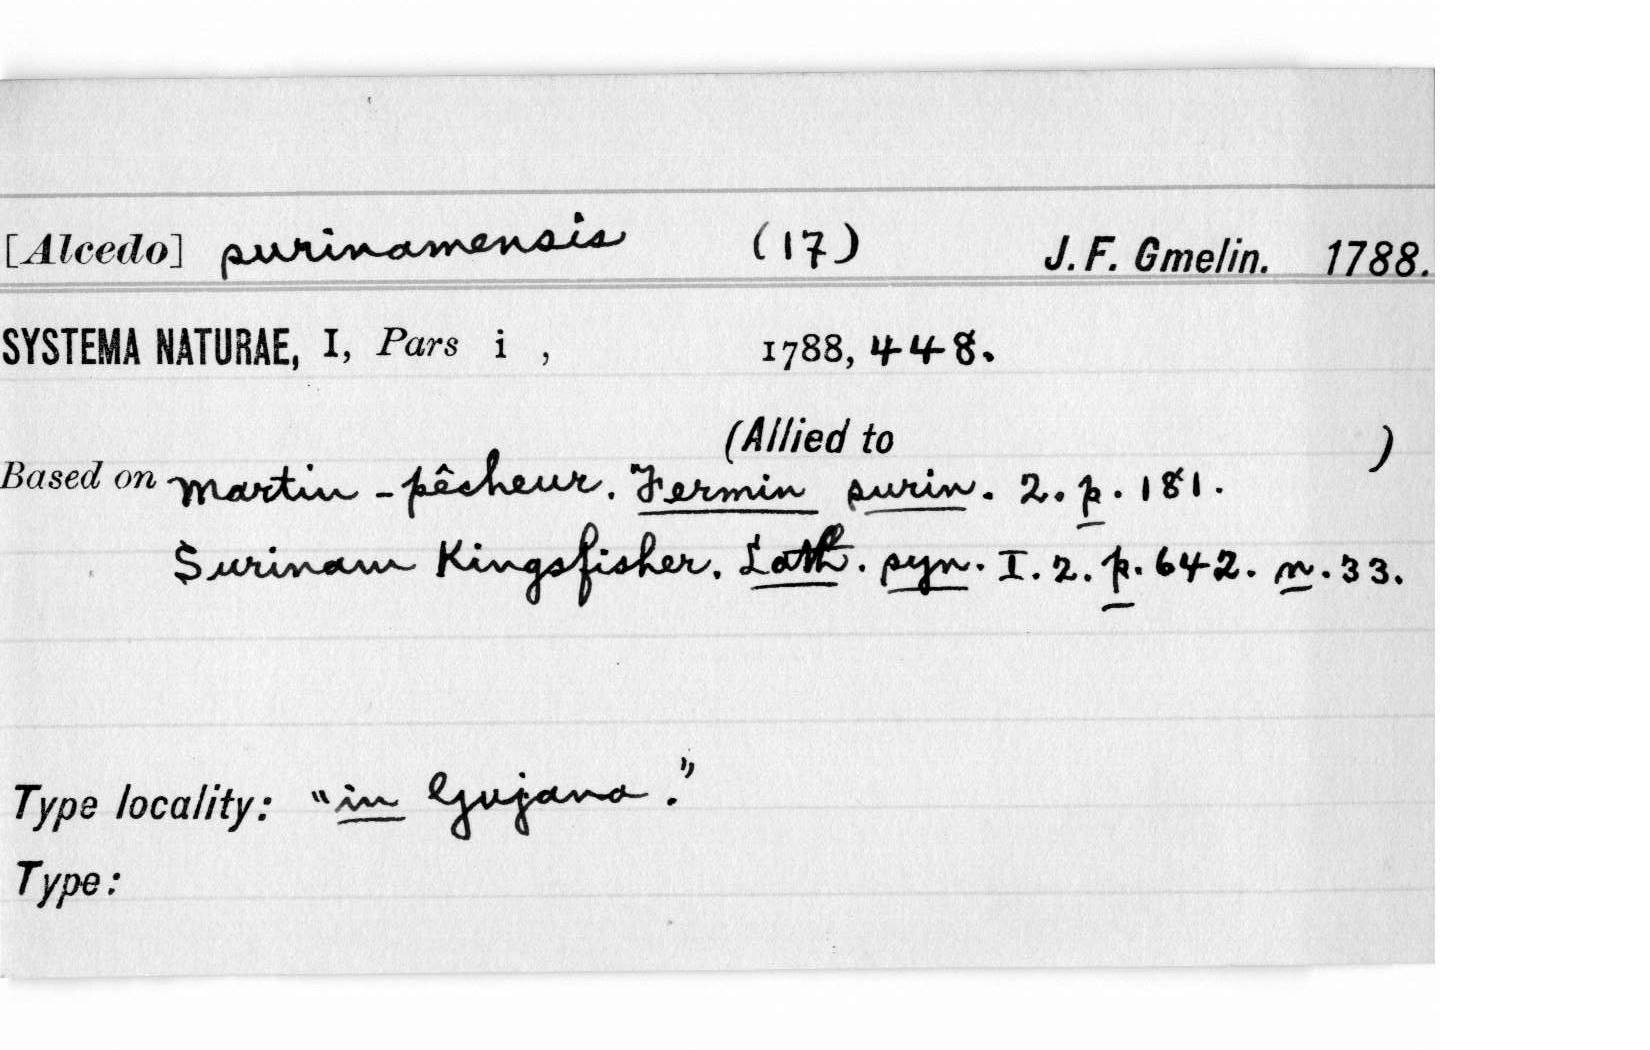 [Alcedo] surinamensis (17) J. F. Gmelin. 1788.
SYSTEMA NATURAE, I, Pars i , 1788, 448.
(Allied to )
Based on Martin-pêcheur. Fermin surin. 2. p. 181.
Surinam Kingsfisher. Lath. syn. I. 2. p. 642. n. 33.
Type locality: "in Gujana."
Type: